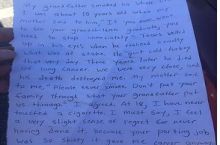 My grandfather smoked his whole life.
I was about 10 years old when my
mother said to him, "If you ever want
to see your grandchildren graduate, you
have to stop immediately." Tears welled
up in his eyes when he realized exactly
what was at stake. He gave it up
that very day. Three years later he died
of lung cancer. It was very sad and
his death destroyed me. My mother said
to me, "Please never smoke. Don't put your
family through what your grandfather put
us through." I agreed. At 18, I have never
touched a cigarette. I must say, I feel
a very slight sense of regret for never
having done it, because your parting job
was so shitty it gave me cancer anyway.